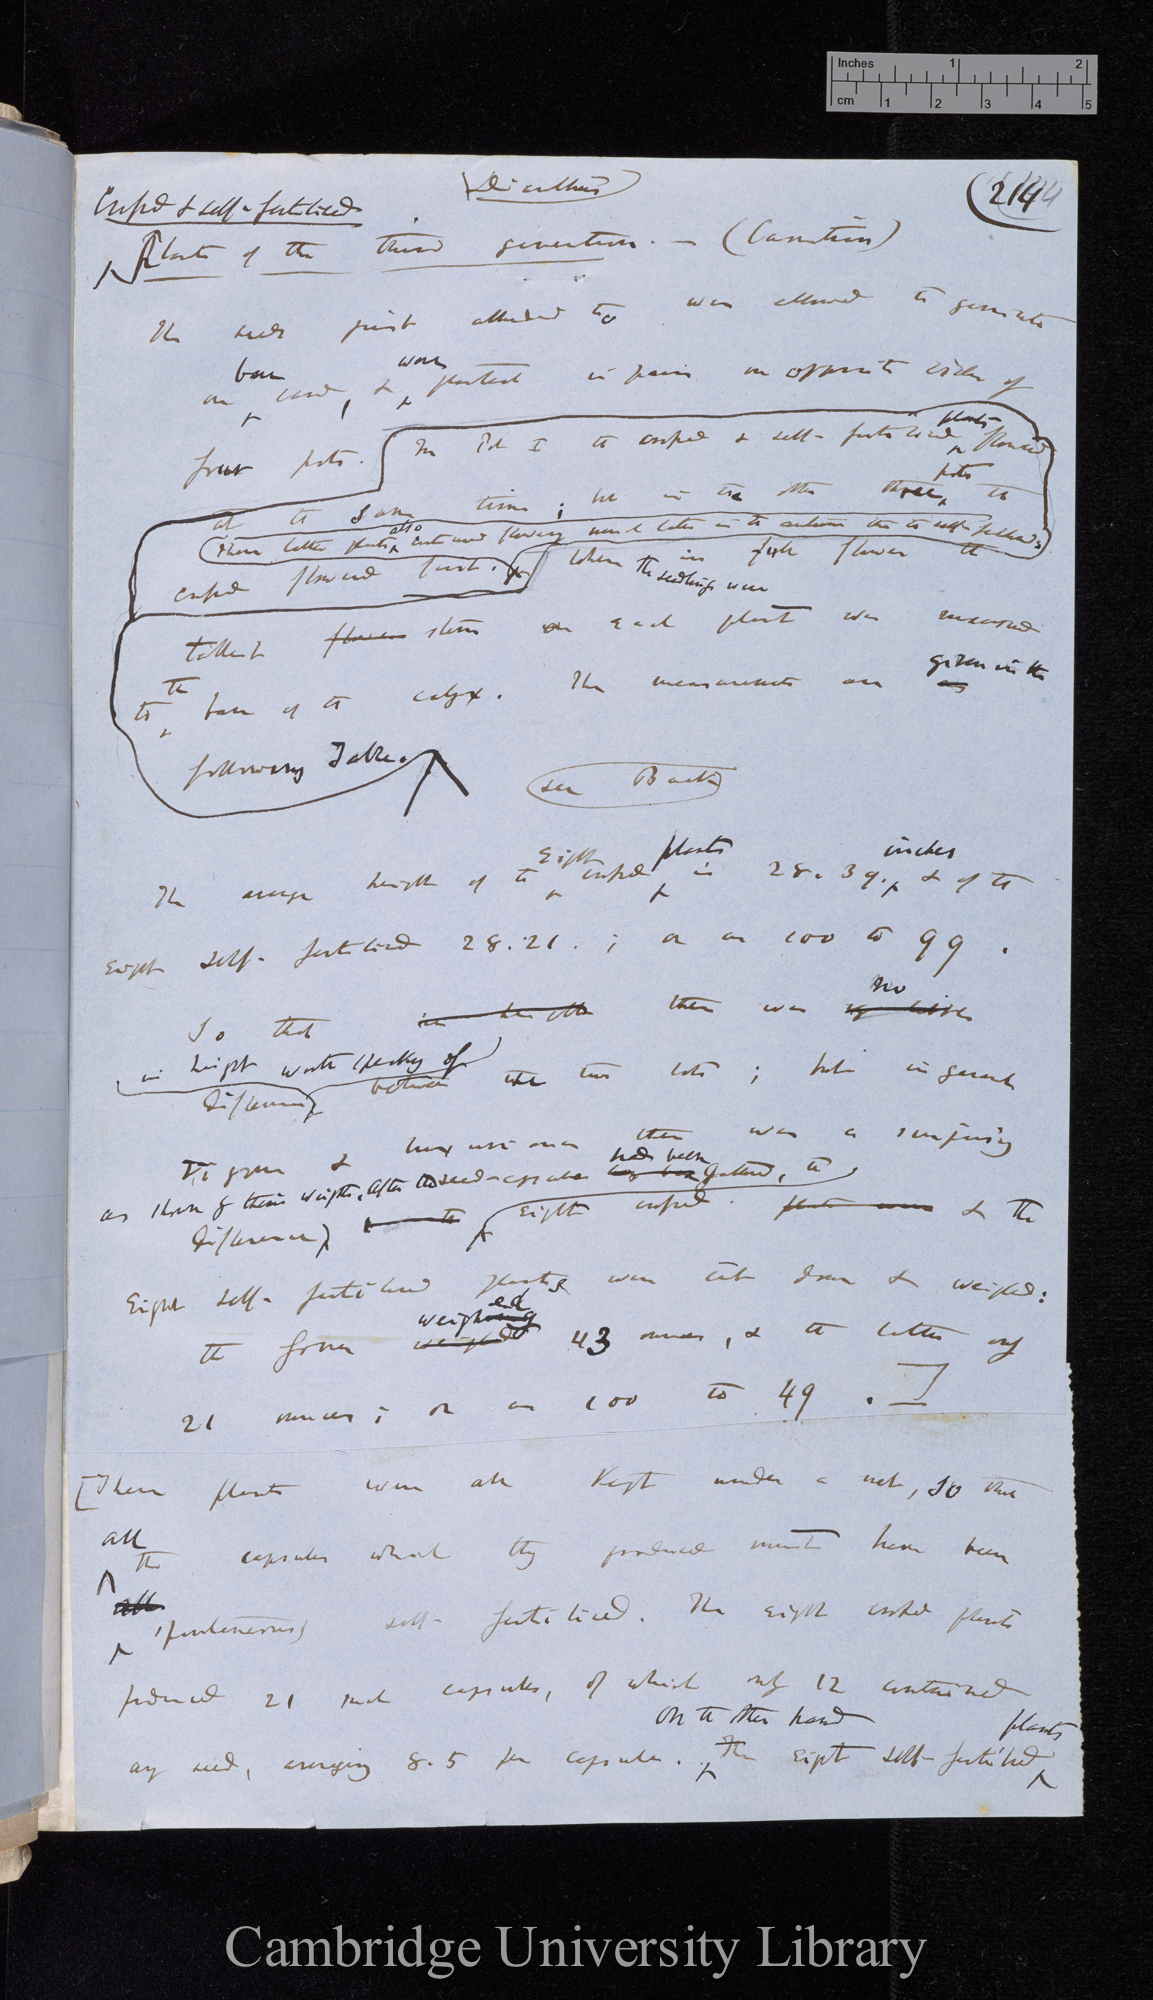 Inches 1 2
cm 1 2 3 4 5
Dianthus
214
Crossed & self-fertilised
Plants of the third generation. — (Carnation)
The seeds just alluded to were allowed to germinate
on bare sand, & were planted in pairs on opposite sides of
four pots. In Pot I the crossed & self-fertilised plants flowered
at the same time; but in the other three pots the
These latter plants also continued flowering much later in the autumn than the self-fertilised
crossed flowered first. When the seedlings were in full flower the
tallest flower stem on each plant was measured
to the base of the calyx. The measurements are as given in the
following Table.
see Back
The average height of the Eight crossed plants is 28.39 inches, & of the
eight self-fertilised 28.21.; or as 100 to 99.
So that in height there was no
in height worth speaking of
difference between the two lots; but in general
vigour & luxuriance there was a surprising
as shown by their weights, After the seed-capsules had been gathered, the
difference, Eight crossed plants were & the
Eight self-fertilised plants were cut down & weighed:
the former weighed 43 ounces, & the latter only
21 ounces; or as 100 to 49.]
[These plants were all Kept under a net, so that
all the capsules which they produced must have been
all spontaneously self-fertilised. The eight crossed plants
produced 21 such capsules, of which only 12 contained
any seed, averaging 8.5 per capsule. On the other hand The eight self-fertilised plants
Cambridge University Library